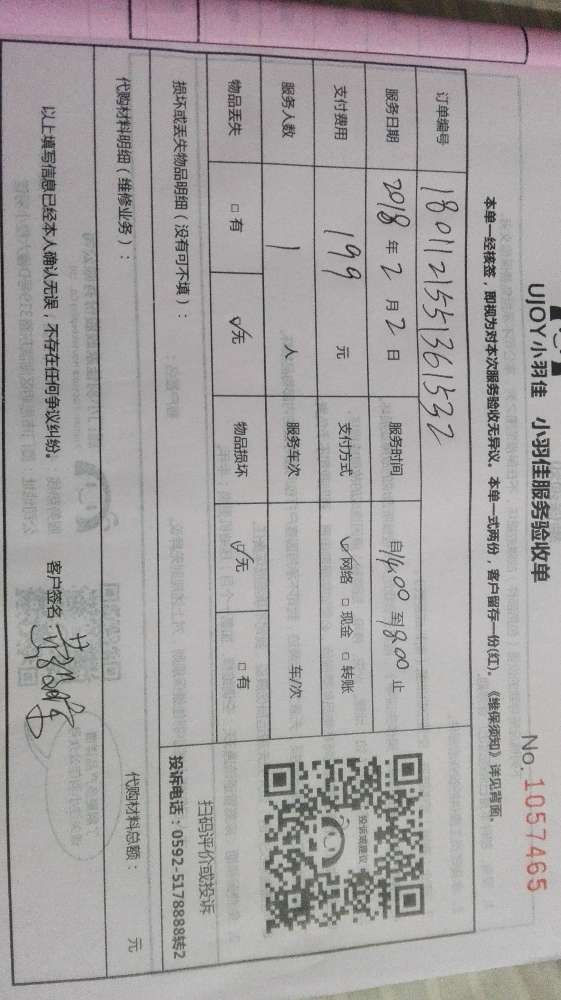 UJOY小羽佳 小羽佳服务验收单
No. 1057465
本单一经核签，即视为对本次服务验收无异议。本单一式两份，客户留存一份(红)。《维保须知》详见背面。
订单编号 1801121551361532
服务日期 2018年2月2日 服务时间 自14:00至18:00止
支付费用 199元 支付方式 ☑网络 □现金 □转账
服务人数 1人 服务车次 车/次
物品丢失 □有 ☑无 物品损坏 ☑无 □有
投诉或建议
扫码评价或投诉
投诉电话：0592-5178888转2
损坏或丢失物品明细（没有可不填）：
代购材料明细（维修业务）： 代购材料总额： 元
以上填写信息已经本人确认无误，不存在任何争议纠纷。 客户签名：